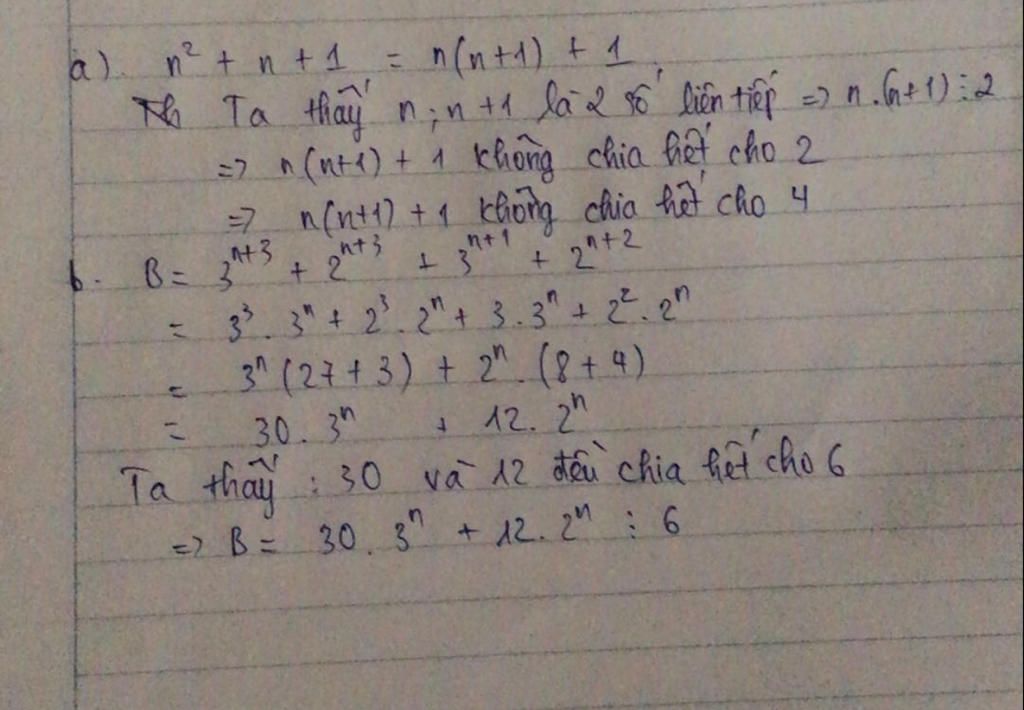 a). n² + n + 1 = n(n+1) + 1
Ta thấy n; n+1 là 2 số liên tiếp => n.(n+1) ⋮ 2
=> n(n+1) + 1 không chia hết cho 2
=> n(n+1) + 1 không chia hết cho 4
b. B = 3ⁿ⁺³ + 2ⁿ⁺³ + 3ⁿ⁺¹ + 2ⁿ⁺²
= 3³. 3ⁿ + 2³. 2ⁿ + 3. 3ⁿ + 2². 2ⁿ
= 3ⁿ (27 + 3) + 2ⁿ. (8 + 4)
= 30. 3ⁿ + 12. 2ⁿ
Ta thấy : 30 và 12 đều chia hết cho 6
=> B = 30. 3ⁿ + 12. 2ⁿ ⋮ 6